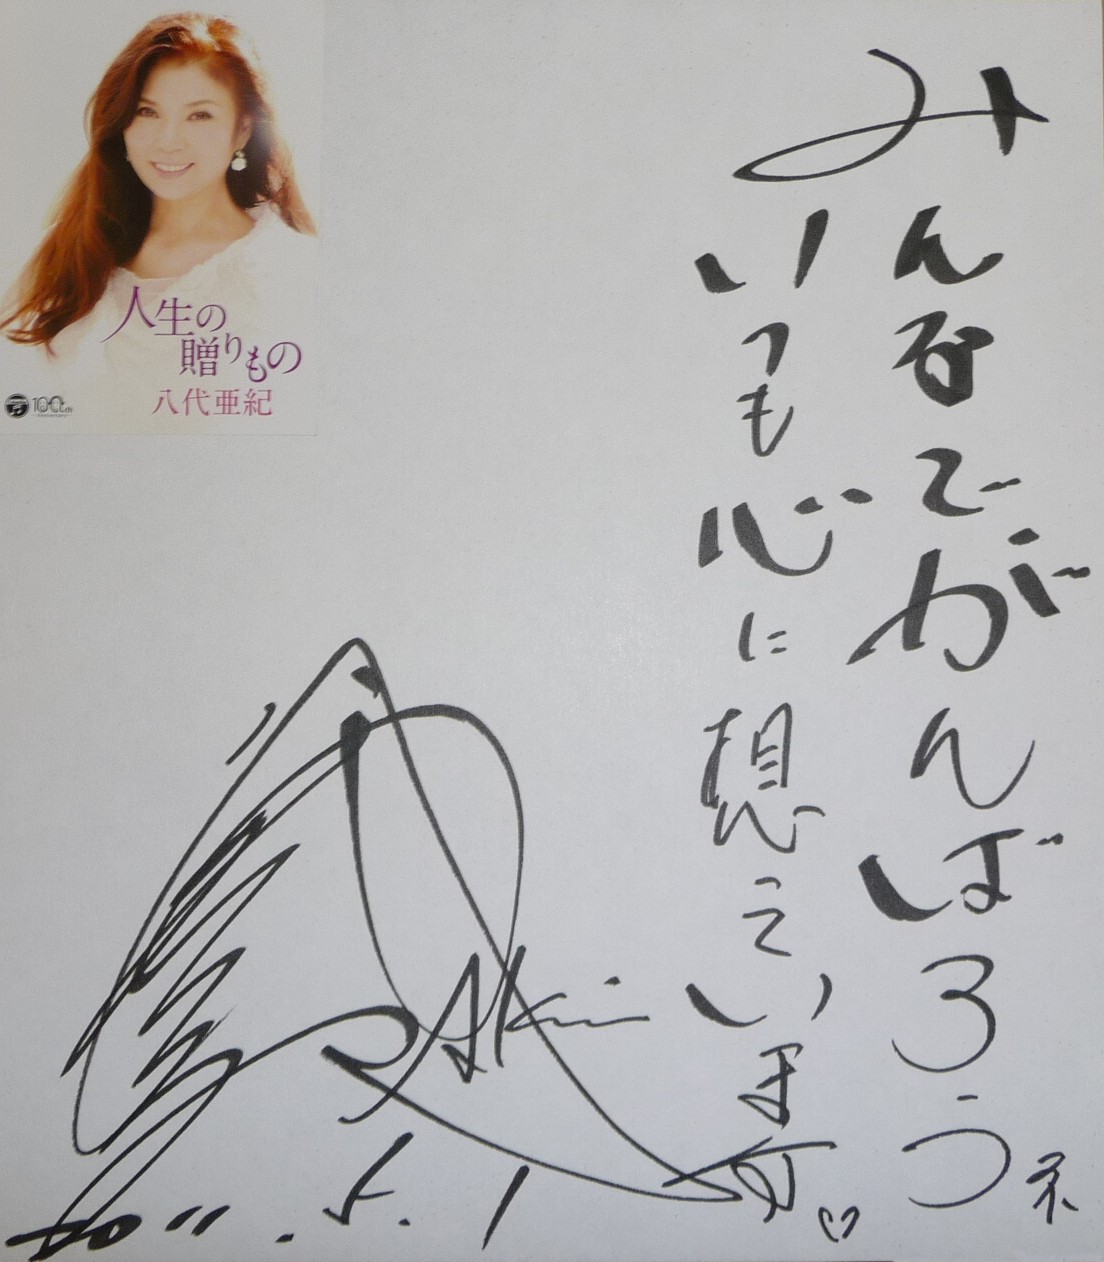 みんなでがんばろうネ
いつも心に想っています。♡
Aki
2011.5.1
人生の
贈りもの
八代亜紀
100th
Anniversary